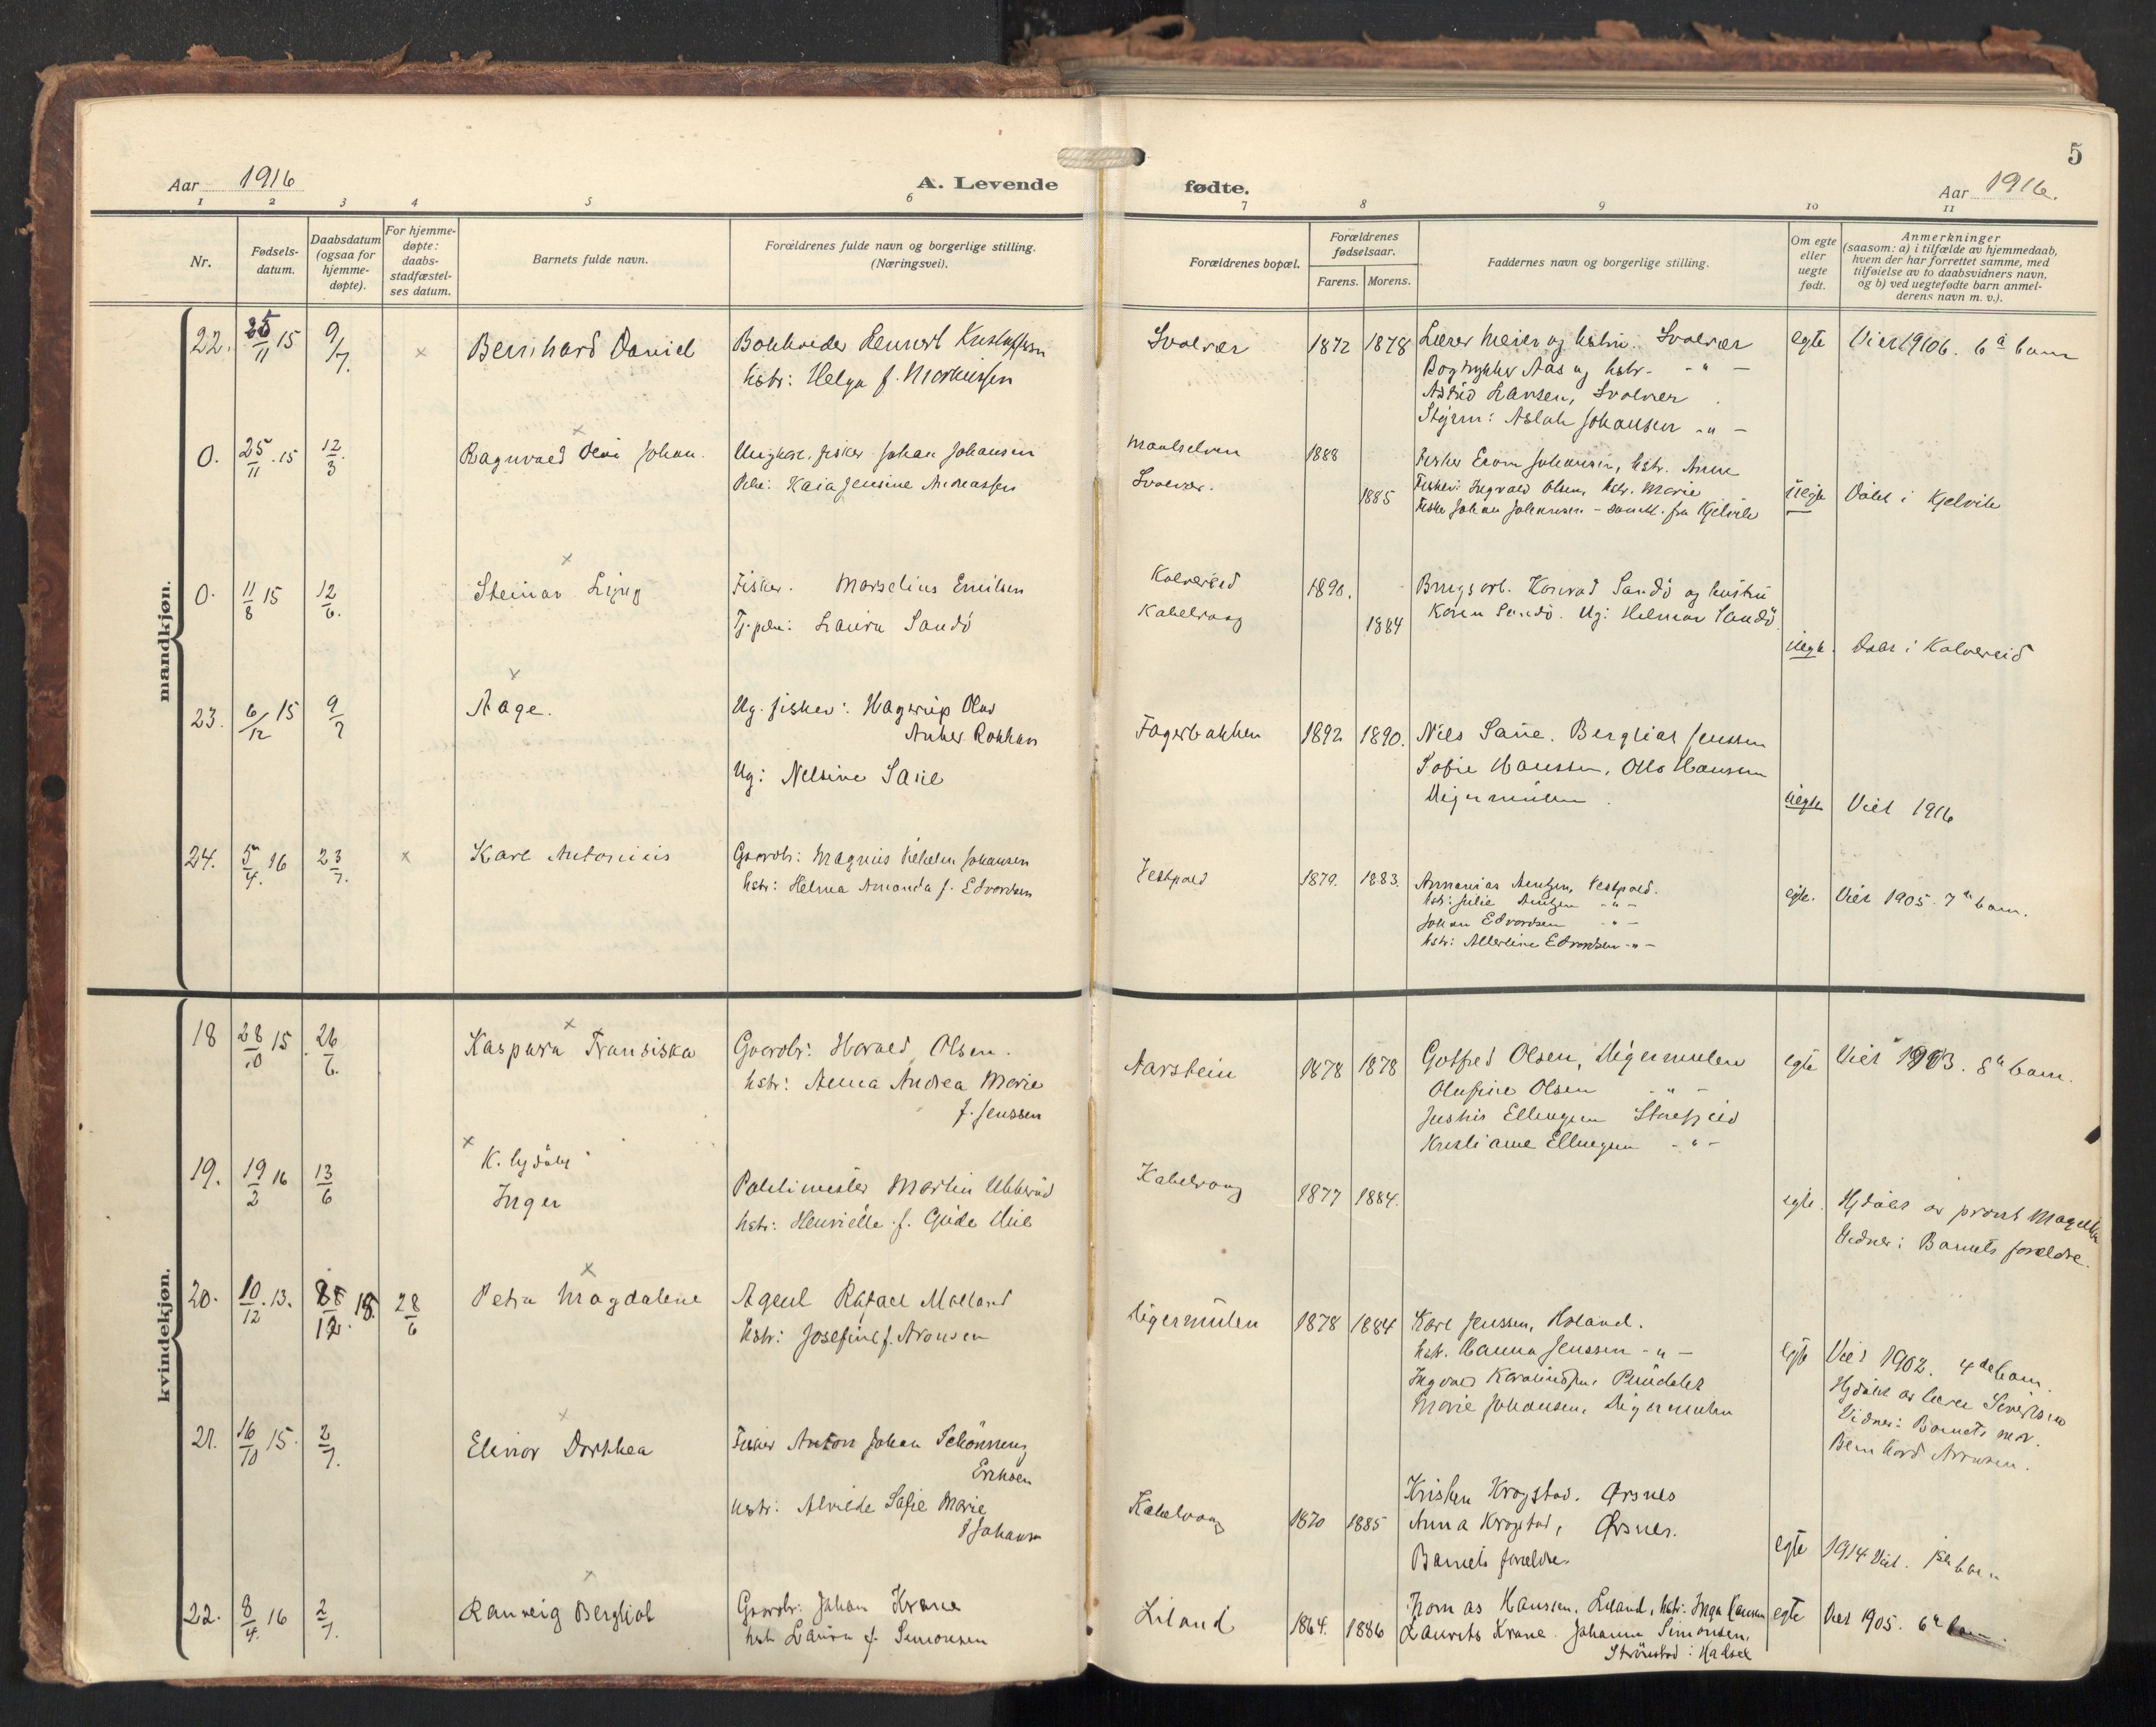 Aar 1916
A. Levende fødte.
5
Aar 1916.
1 2 3 4 5 6 7 8 9 10 11
Nr.
Fødsels-
datum.
Daabsdatum
(ogsaa for
hjemme-
døpte).
For hjemme-
døpte:
daabs-
stadfæstel-
ses datum.
Barnets fulde navn.
Forældrenes fulde navn og borgerlige stilling.
(Næringsvei).
Forældrenes bopæl.
Forældrenes
fødselsaar.
Farens. Morens.
Faddernes navn og borgerlige stilling.
Om egte
eller
uegte
født.
Anmerkninger
(saasom: a) i tilfælde av hjemmedaab,
hvem der har forrettet samme, med
tilføielse av to daabsvidners navn,
og b) ved uegtefødte barn anmel-
derens navn m. v.).
mandkjøn.
22. 25/11 15 9/7. × Bernhard Daniel
Hstr: Helga f. Markussen
Svolvær 1872 1878
Lærer Meier og hstru. Svolvær
Bogtrykker Aas og hstr. - " -
Astrid Larsen, Svolvær.
Styrm: Aslak Johansen - " -
egte
Viet 1906. 6te barn
0. 25/11 .15 12/3 Ragnvald Johan.
Ungkar, fisker Johan Johansen
Pike: Kaia Jensine Andreassen
Svolvær.
1888 1885
Johansen, hstr. Anne
Fisker: Ingvald Olsen, hstr. Marie
Fisker Johan Johansen - samtl. fra Kjelvik
uegte
Døbt i Kjelvik
0. 11/8 15 12/6. Steinar
Fisker. Marselius Emilsen
Tj.pike: Laura Sandö
Kolvereid
Kabelvaag
1890. 1884
Brugsarb. Konrad Sandö og hustru
Karen Sandö. Ug: Helmer Sandö
uegte.
Døbt i Kolvereid
23. 6/12 15 9/7 Aage.
Ug. fisker: Hagerup Olus
Anker Rokkan
Ug: Nelsine Sane
Fagerbakken 1892 1890.
Nils Sane. Bergliot Jenssen
Sofie Hanssen, Otto Hansen
Digermulen.
uegte
Viet 1916
24. 5/4. 16 23/7. × Karl Antonius
Gaardbr: Magnus Vilhelm Johansen
hstr: Helma Amanda f. Edvardsen
Vestpold 1879. 1883.
Annanias Arntzen, Vestpold.
hstr: Julie Arntzen - " -
Johan Edvardsen - " -
hstr: Albertine Edvardsen - " -
egte.
Viet 1905. 7de barn.
kvindekjøn.
18 28/10 15 26/6. Kaspara Fransiska
Gaardbr: Harald Olsen.
hstr: Anna Andrea Marie
f. Jenssen
Aarstein 1878 1878
Gotfred Olsen, Digermulen
Olufine Olsen - " -
Justus Ellingsen Storfjeld
Kristiane Ellingsen - " -
egte
Viet 1903. 8de barn.
19. 19/2 16 13/6
Inger
Politimester Martin Ubberud
hstr: Henriette f. Gude
Kabelvaag 1877 1884.
egte.
Hjdøbt av provst
Vidner: Barnets forældre.
20. 10/12. 13. 28/6 Petra Magdalene
Agent Rafael Molland
hstr: Josefine f. Aronsen
Digermulen 1878 1884
Karl Jenssen, Holand.
hstr. Hanna Jenssen - " -
Marie Johansen, Digermulen
egte
Viet 1902. 4de barn.
Hjdøbt av lærer Sivertsen
Vidner: Barnets mor.
Bernhard Aronsen.
21. 16/10 15. 2/7. Elinor Dorthea
Fisker Anton Johan Schönning
Eriksen
hstr: Alvilde Sofie Marie
f Johansen
Kabelvaag 1870 1885
Kristen Krogstad. Ørsnes
Anna Krogstad, Ørsnes.
Barnets forældre.
egte
1914 Viet. 1ste barn
22. 8/4. 16 2/7. Ranveig Bergliot
Gaardbr: Johan Krane
hstr Laura f. Simonsen
Liland 1864. 1886
Thomas Hanssen, Liland, hstr: Inga Hansen
Laurits Krane. Johanna Simonsen,
Strönstad i Hadsel
egte
Viet 1905. 6te barn.